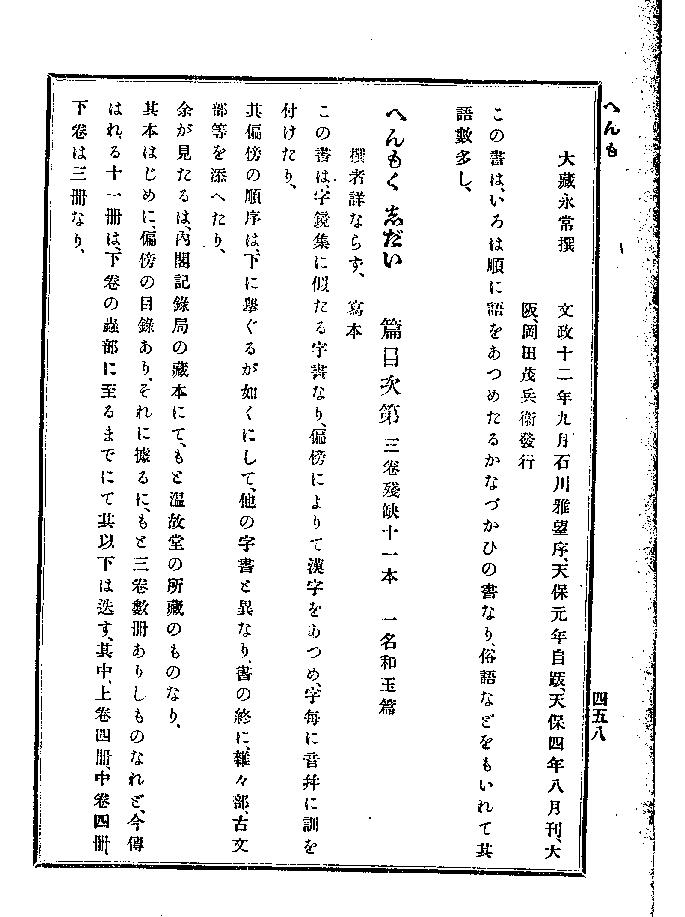 へんも
四五八
大藏永常撰　文政十二年九月石川雅望序、天保元年自跋、天保四年八月刊、大
阪、岡田茂兵衞發行
この書は、いろは順に語をあつめたるかなづかひの書なり、俗語などをもいれて其
語數多し、
へんもく志だい　篇目次第　三卷殘缺十一本　一名和玉篇
撰者詳ならず、　寫本
この書は、字鏡集に似たる字書なり、偏傍によりて漢字をあつめ、字每に音幷に訓を
付けたり、
其偏傍の順序は、下に擧ぐるが如くにして、他の字書と異なり、書の終に、雜々部、古文
部等を添へたり、
余が見たるは、內閣記錄局の藏本にて、もと溫故堂の所藏のものなり、
其本はじめに、偏傍の目錄あり、それに據るに、もと三卷數册ありしものなれど、今傳
はれる十一册は、下卷の蟲部に至るまでにて其以下は迭す、其中、上卷四册、中卷四册、
下卷は三册なり、